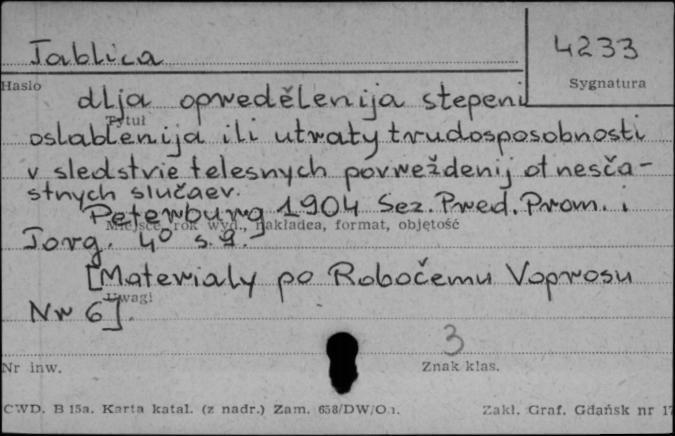 Tablica
4233
Hasło
Sygnatura
dlja opredělenija stepeni
Tytuł
oslablenija ili utraty trudosposobnosti
v sledstvie telesnych povreždenij ot nesča-
stnych slučaev.
Peterburg 1904 Sez. Pred. Prom. i
Miejsce, rok wyd., nakładca, format, objętość
Torg. 4° s. 9.
[Materialy po Robočemu Voprosu
Uwagi
Nr 6].
3
Nr inw.
Znak klas.
CWD. B 15a. Karta katal. (z nadr.) Zam. 658/DW/O.1.
Zakł. Graf. Gdańsk nr 17